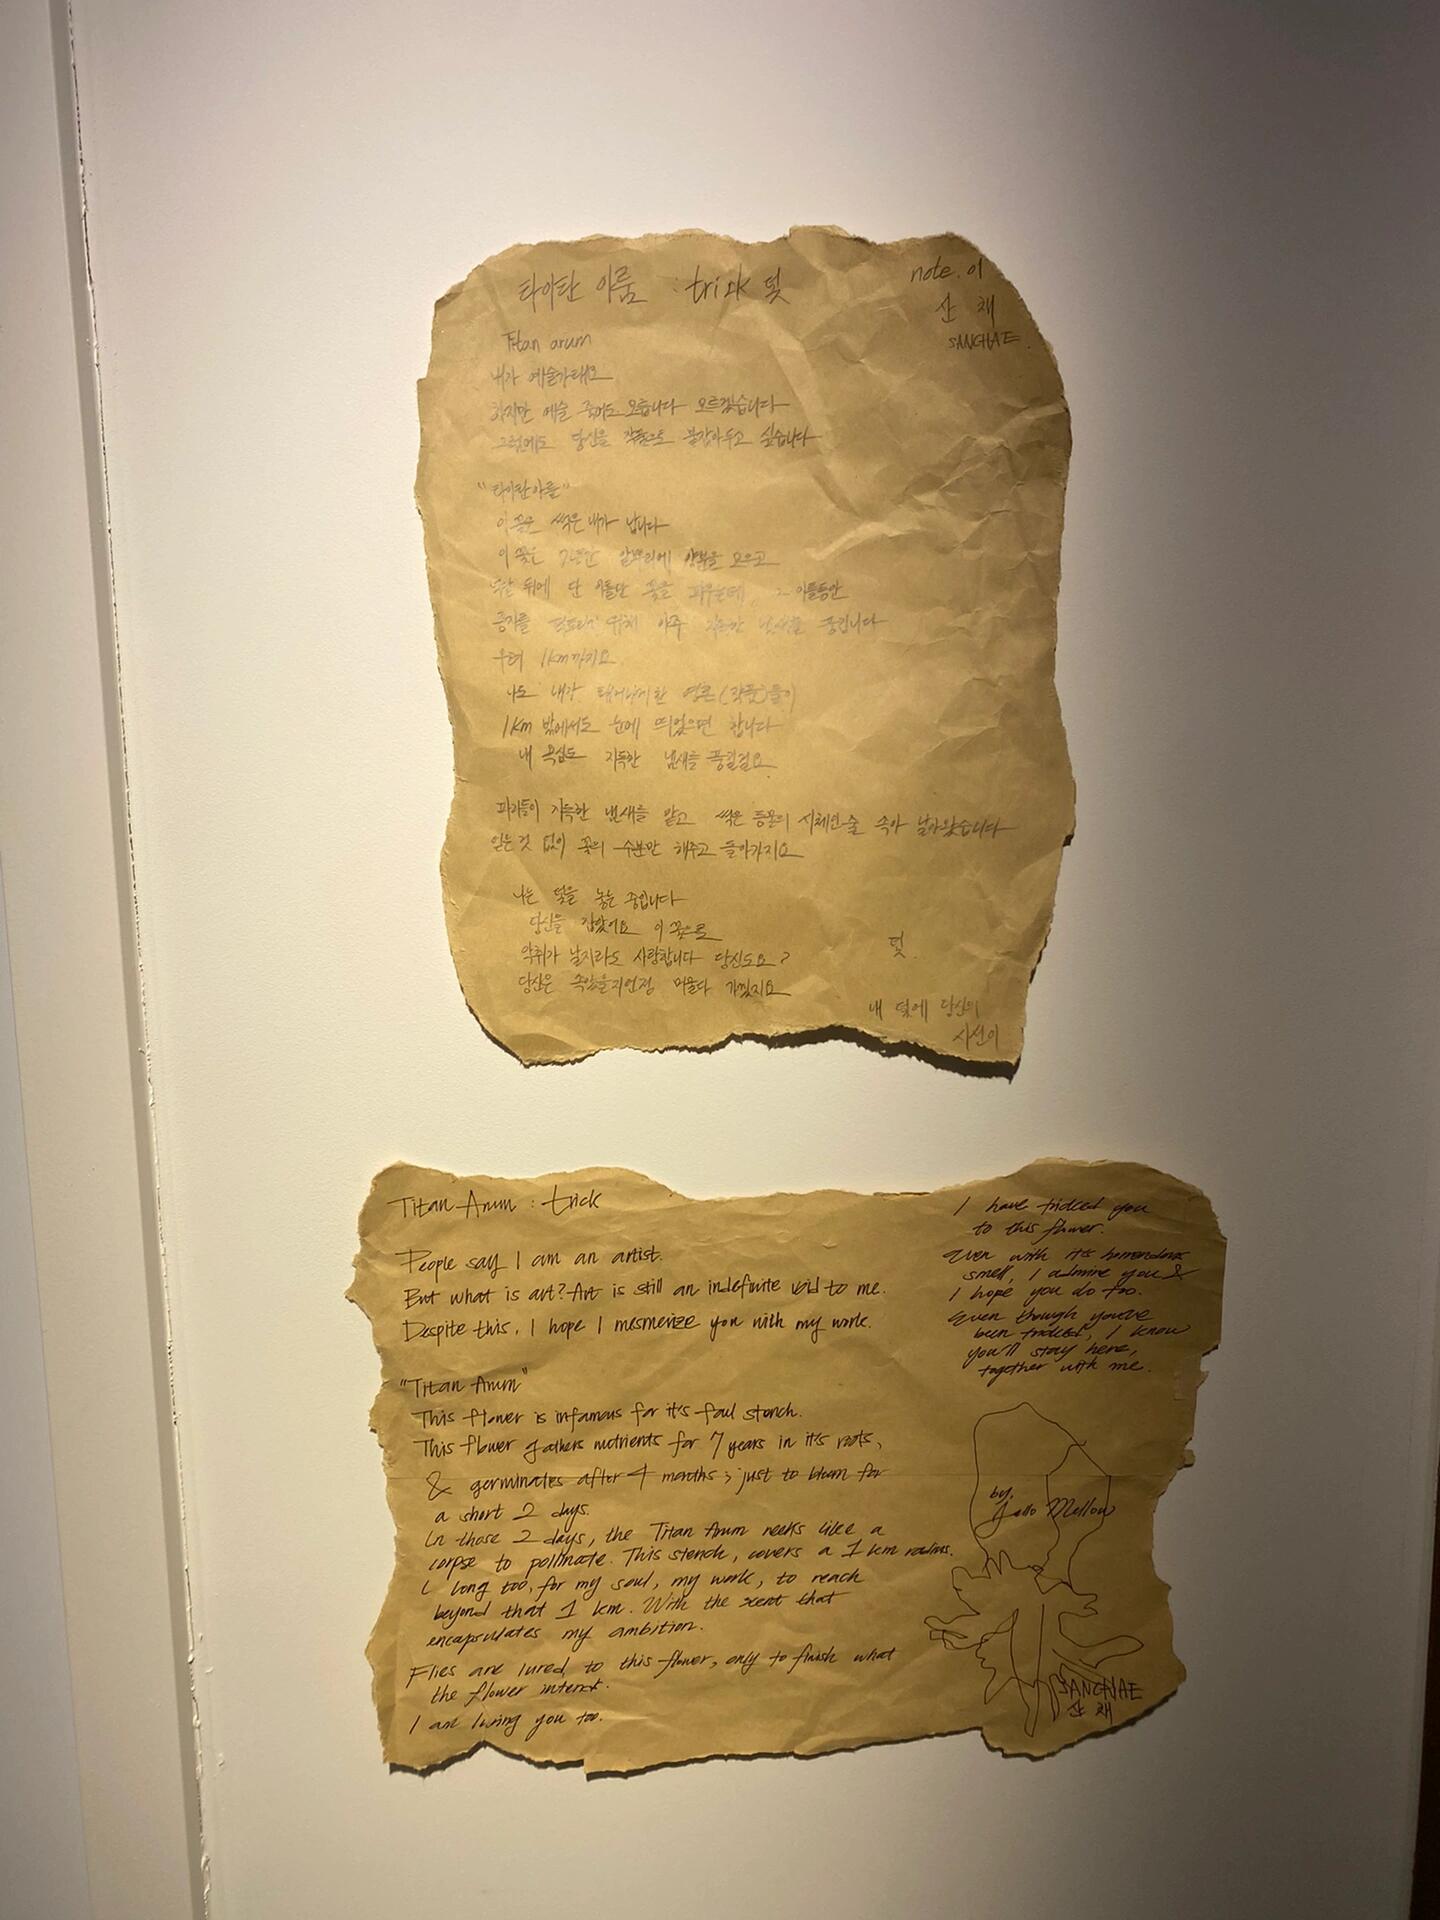 타이탄 아룸 : trick 덫
note. 01
산 채
SANCHAE.
Titan arum
내가 예술가래요
하지만 예술 죽어도 모릅니다 모르겠습니다
그럼에도 당신을 작품으로 붙잡아두고 싶습니다
"타이탄아룸"
이 꽃은 썩은내가 납니다
이 꽃은 7년간 알뿌리에 양분을 모으고
뒤에 단 이틀만 꽃을 피우는데, 그 이틀동안
종자를 퍼트리기 위해 아주 지독한 냄새를 풍깁니다
무려 1km까지요
나도 내가 태어나게한 영혼(작품)들이
1km 밖에서도 눈에 띄었으면 합니다
내 욕심도 지독한 냄새를 풍길걸요
파리들이 지독한 냄새를 맡고 썩은 동물의 시체인 줄 속아 날아왔습니다
얻는 것 없이 꽃의 수분만 해주고 돌아가지요
나는 덫을 놓는 중입니다
당신을 잡았어요 이 꽃으로
악취가 날지라도 사랑합니다 당신도요?
당신은 속았을지언정 머물다 가겠지요
덫.
내 덫에 당신의
시선이
Titan Arum : trick
People say I am an artist.
But what is art? Art is still an indefinite void to me.
Despite this, I hope I mesmerize you with my work.
"Titan Arum"
This flower is infamous for it's foul stench.
This flower gathers nutrients for 7 years in it's roots,
& germinates after 4 months ; just to bloom for
a short 2 days.
In those 2 days, the Titan Arum reeks like a
corpse to pollinate. This stench, covers a 1 km radius.
I long too, for my soul, my work, to reach
beyond that 1 km. With the scent that
encapsulates my ambition.
Flies are lured to this flower, only to finish what
the flower intends.
I am luring you too.
I have tricked you
to this flower.
Even with it's horrendous
smell, I admire you &
I hope you do too.
Even though you've
been tricked, I know
you'll stay here,
together with me.
by,
Jello Mellow
SANCHAE
산 채